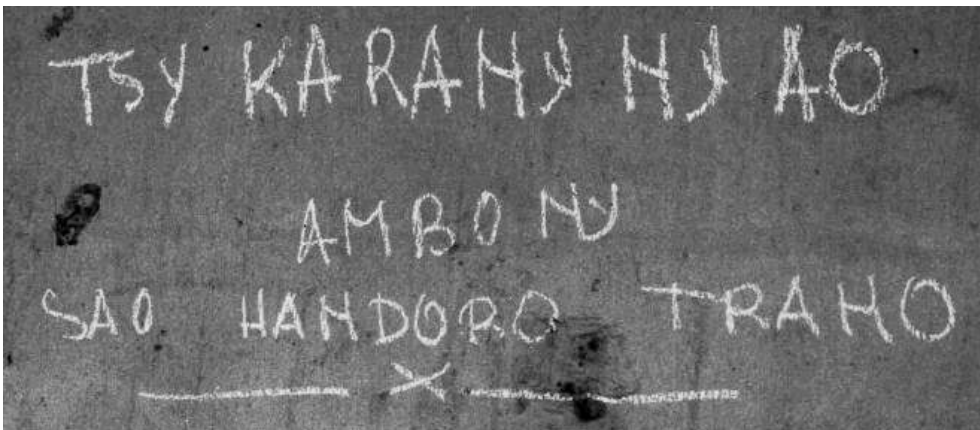 TSY KARANY NY AO
AMBONY
SAO HANDORO TRANO